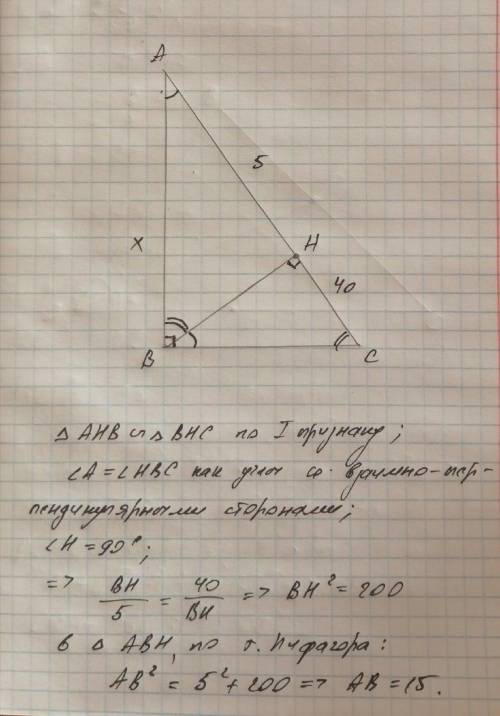 A
5
x
H
40
B
C
Δ AHB ∽ Δ BHC по I признаку;
∠A = ∠HBC как углы со взаимно-пер-
пендикулярными сторонами;
∠H = 90°;
=> BH/5 = 40/BH => BH² = 200
в Δ ABH, по т. Пифагора:
AB² = 5² + 200 => AB = 15.